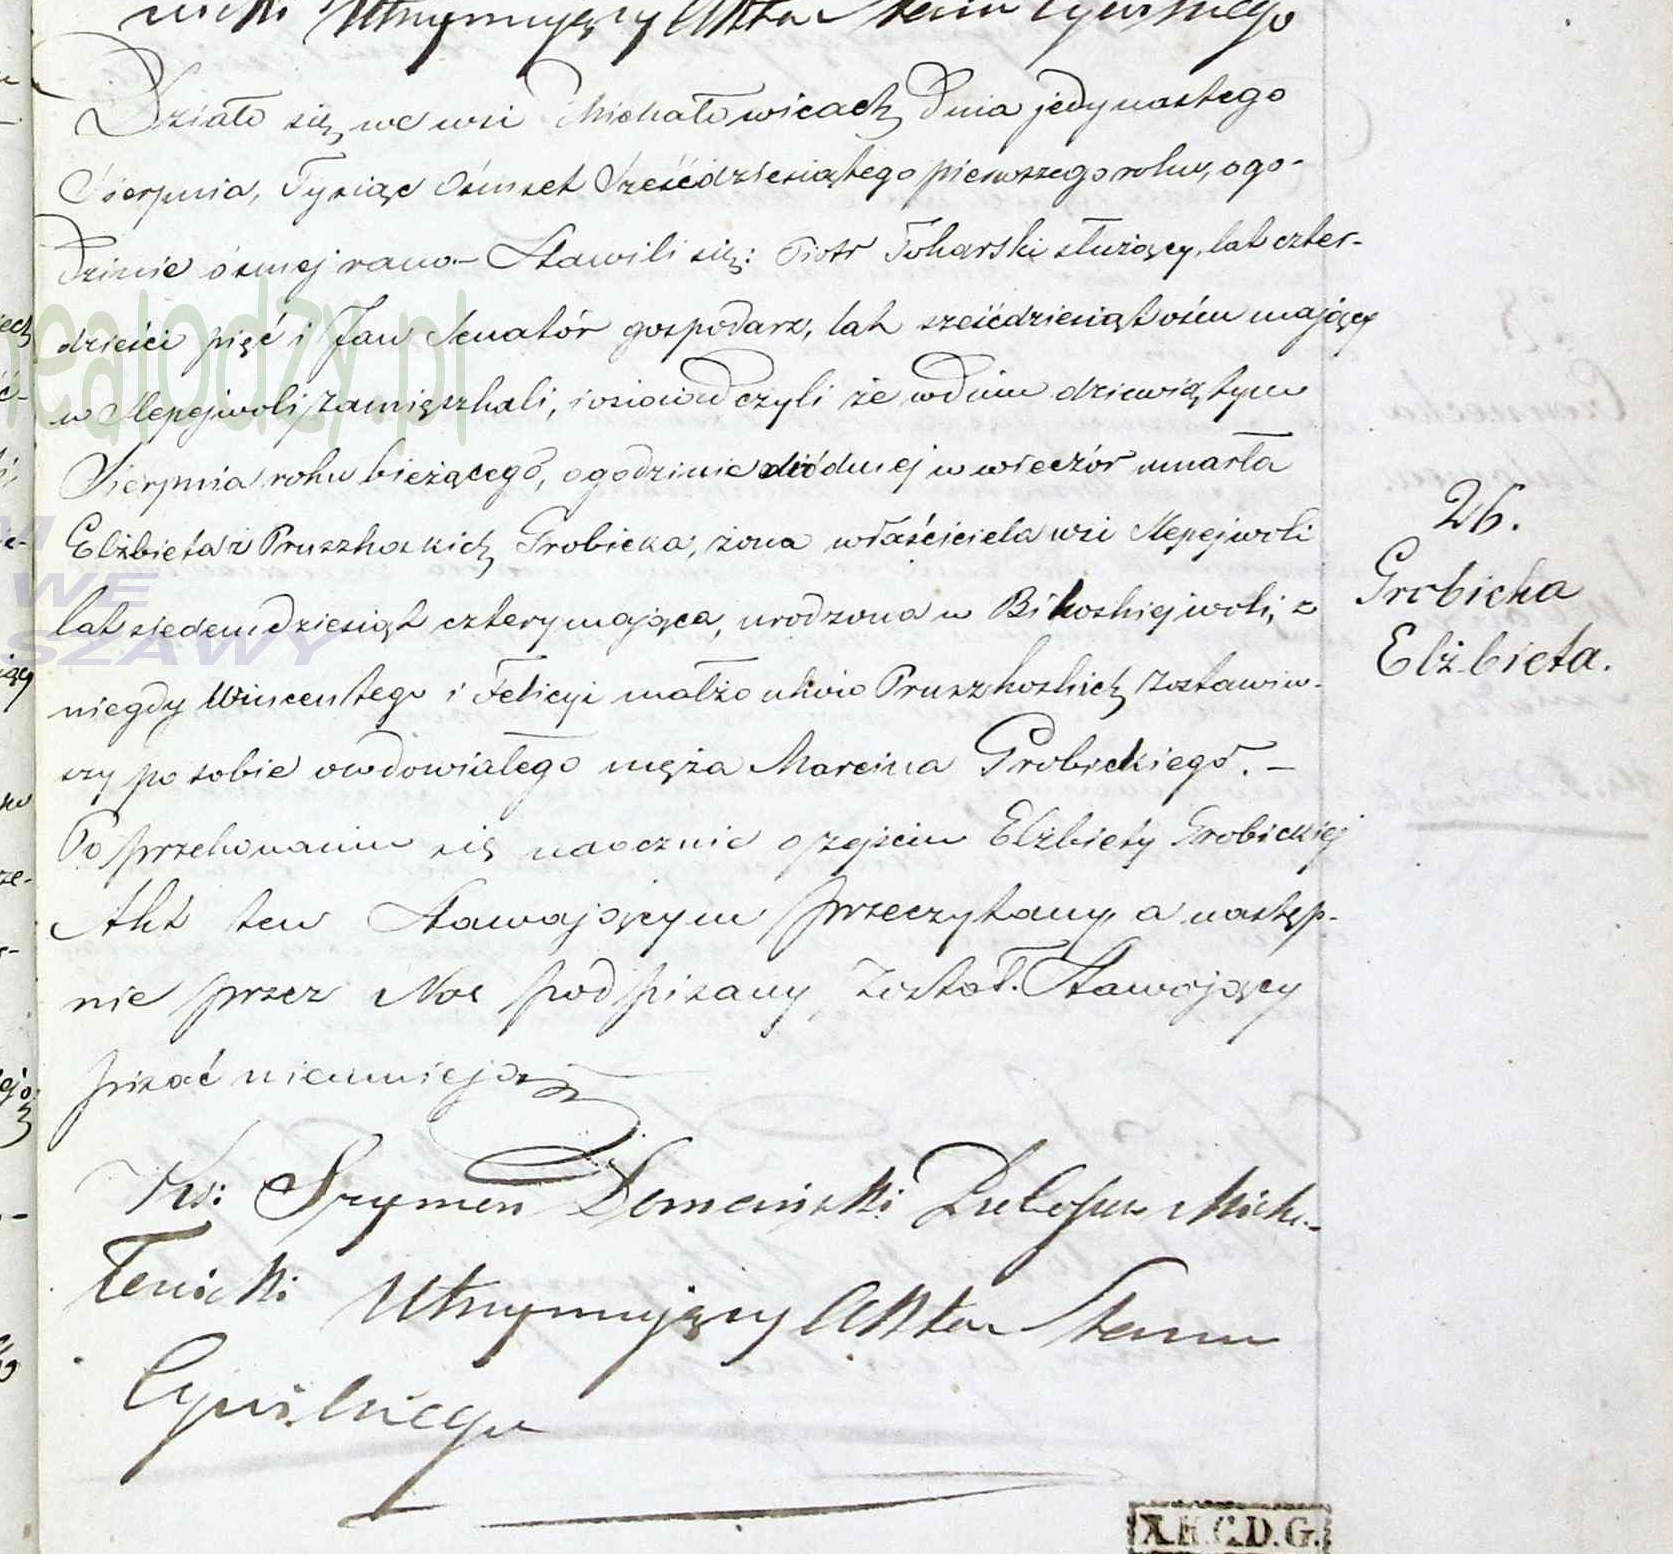 nicki Utrzymujący Akta Stanu Cywilnego
Działo się we wsi Michałowicach Dnia jedynastego
Sierpnia, Tysiąc Ośmset Sześćdziesiątego pierwszego roku, o go-
dzinie ósmej rano.- Stawili się: Piotr Tokarski służący, lat czter-
dzieści pięć i Jan Senatór gospodarz, lat sześćdziesiąt ośm mający
w Slepejwoli zamięszkali, i oświadczyli że w dniu dziewiątym
Sierpnia roku bieżącego, o godzinie siódmej w wieczór umarła
Elżbieta z Pruszkoskich Grobicka, żona właściciela wsi Slepejwoli
lat siedemdziesiąt cztery mająca, urodzona w Bikoskiejwoli, z
niegdy Wincentego i Felicyi małżonków Pruszkoskich zostawiw-
szy po sobie owdowiałego męża Marcina Grobickiego. -
Po przekonaniu się naocznie o zejściu Elżbiety Grobickiej
Akt ten Stawającym przeczytany, a następ-
nie przez Nas podpisany, Został. Stawający
pisać nieumieją
Ks: Szymon Domański Pleban Micha-
łowicki Utrzymujący Akta Stanu
Cywilnego
26.
Grobicka
Elżbieta.
ealodzy.pl
WE
SZAWY
X.H.C.D.G.